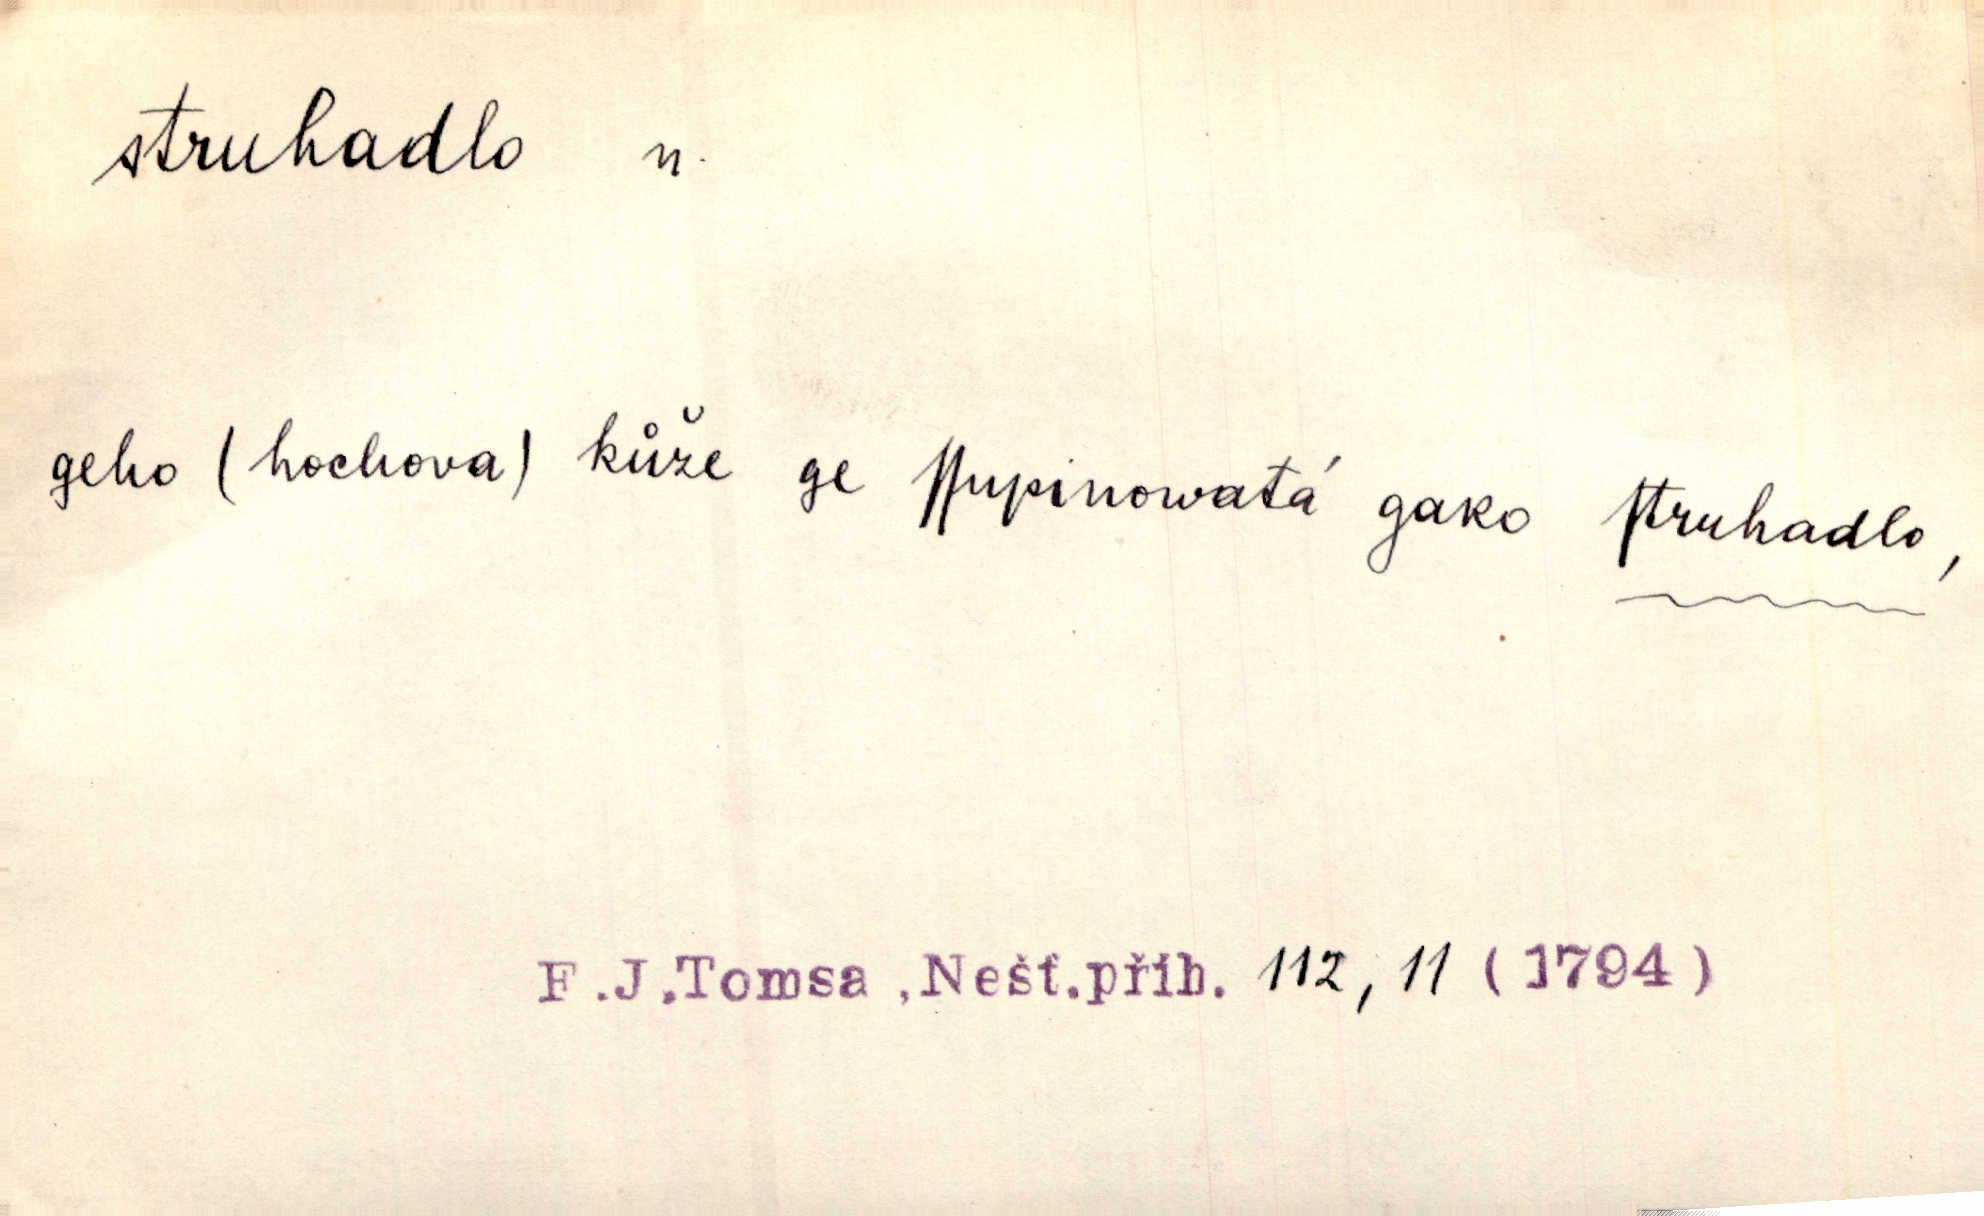 struhadlo n.
geho (hochova) kůže ge ſſupinowatá gako ſtruhadlo,
F.J.Tomsa ,Nešť.příh. 112, 11 (1794)